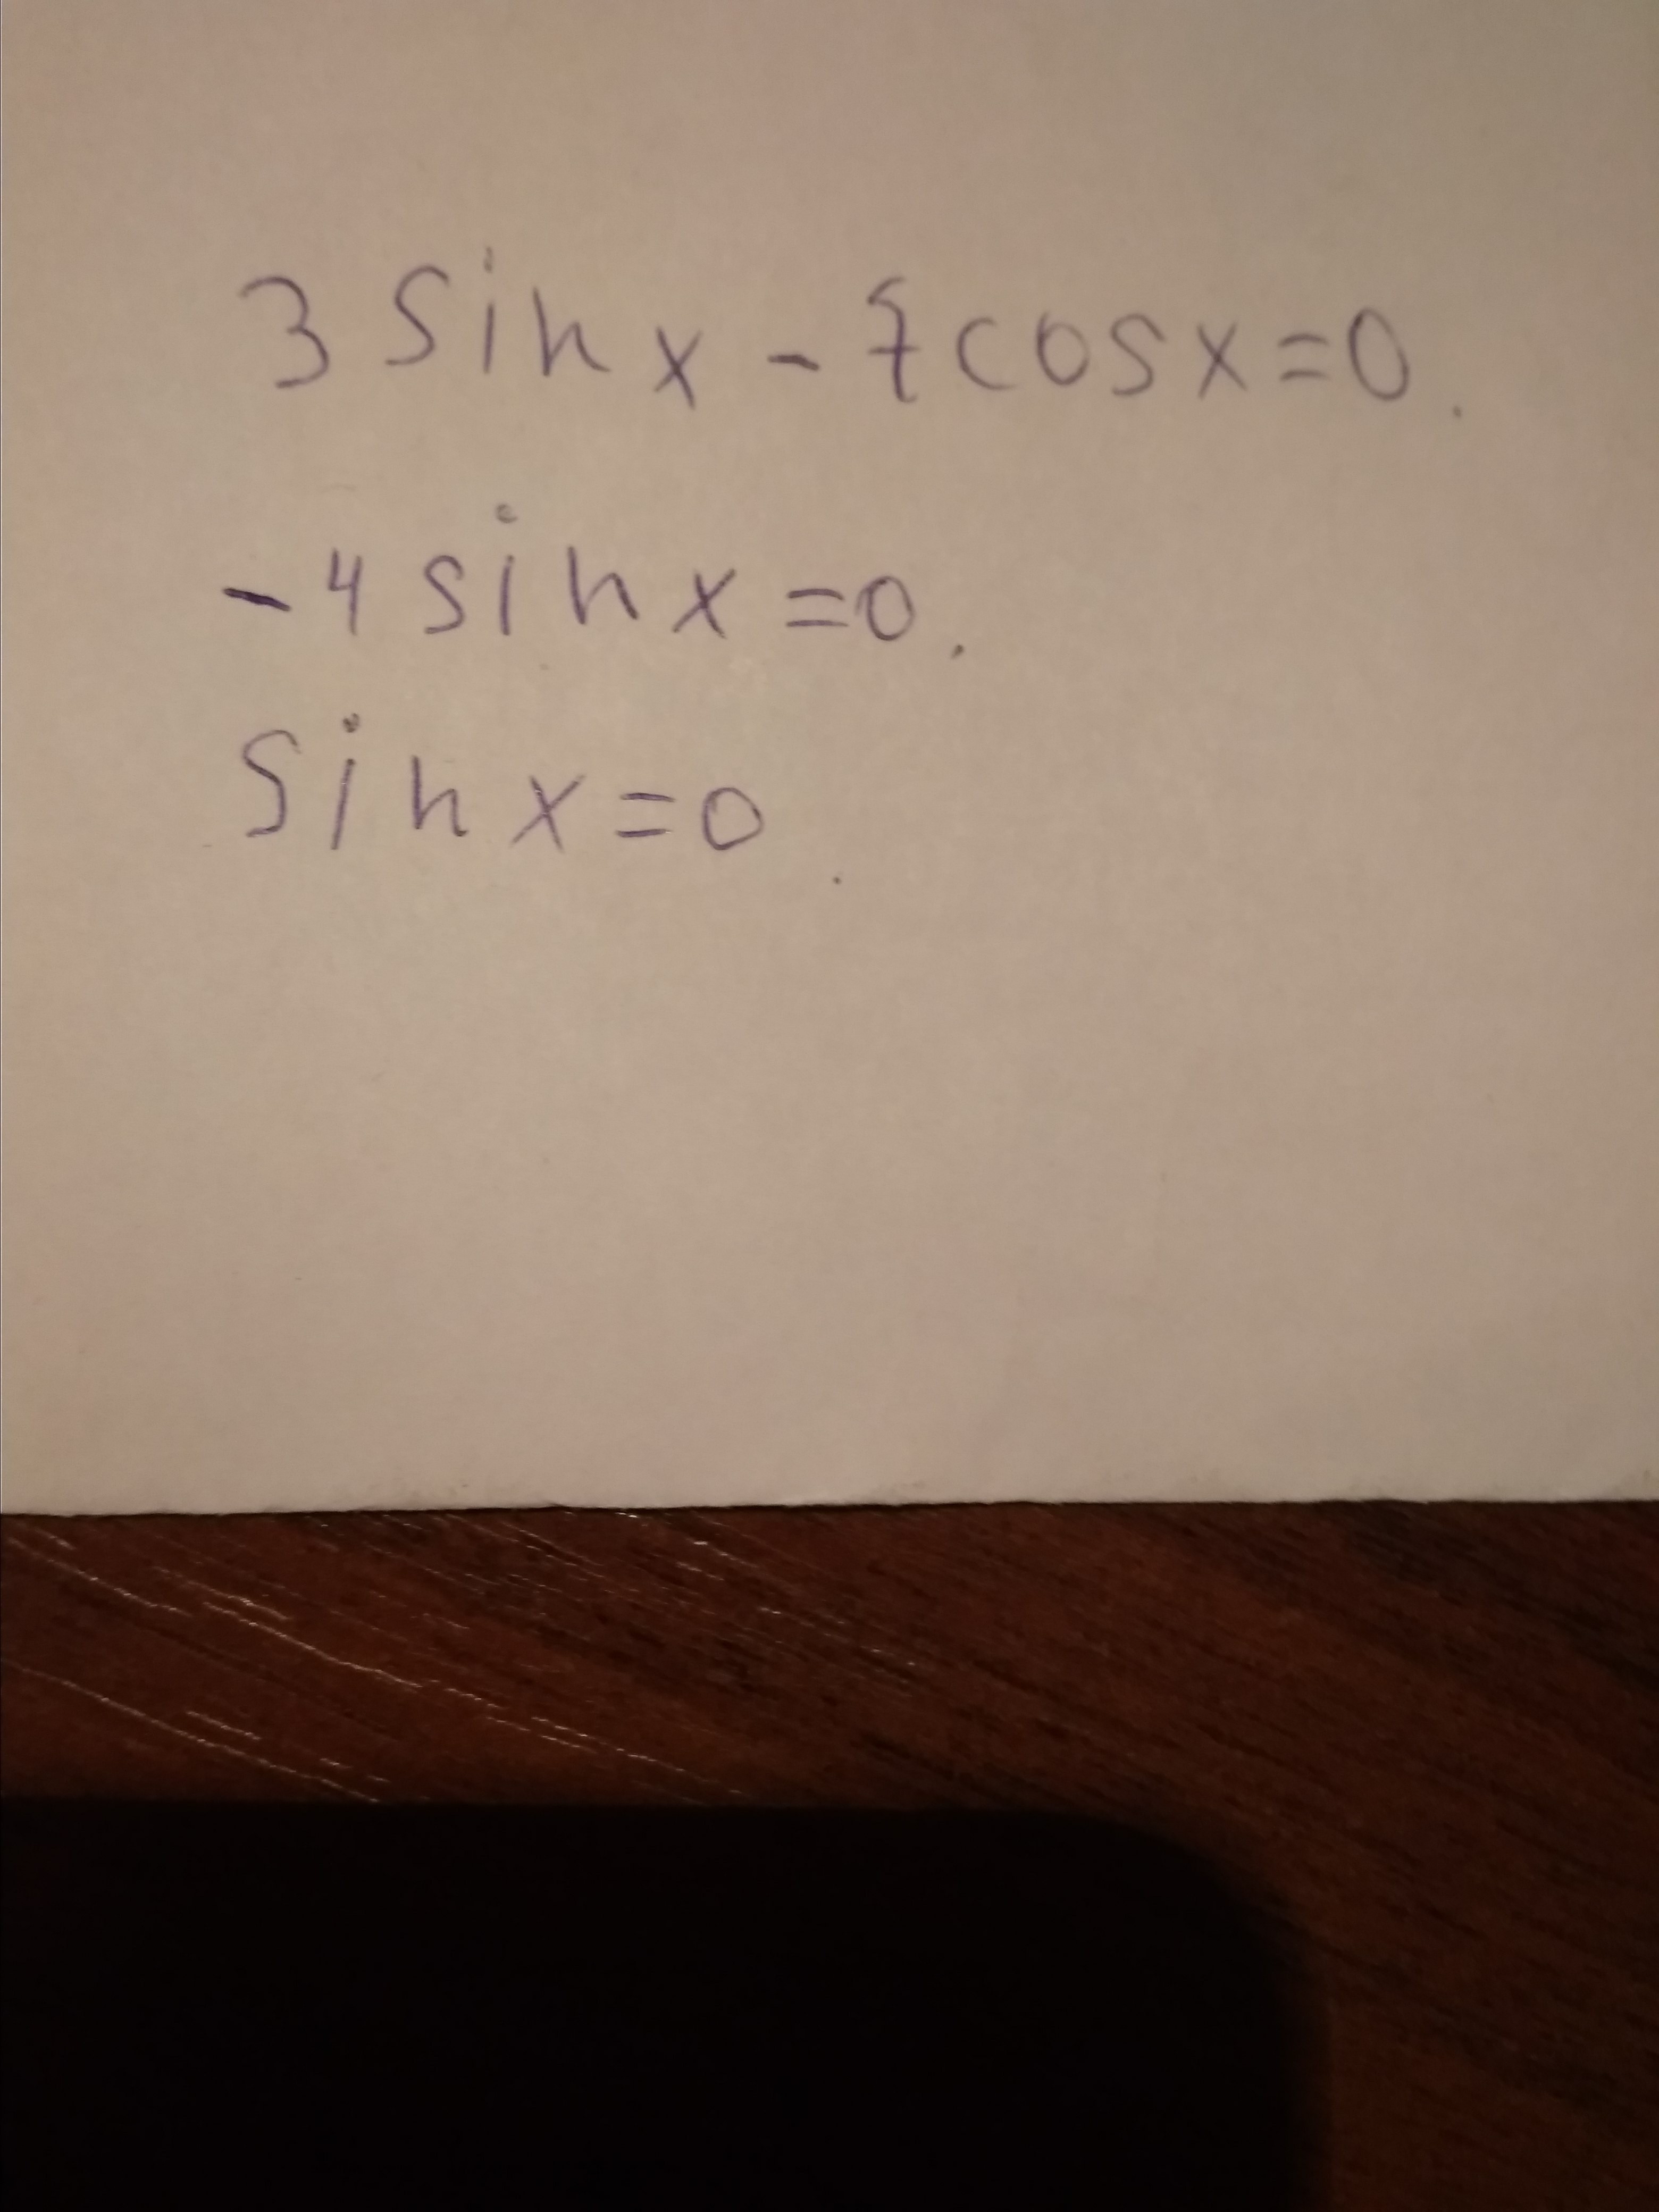 3 sin x - 7 cos x = 0.
- 4 sin x = 0.
Sin x = 0.